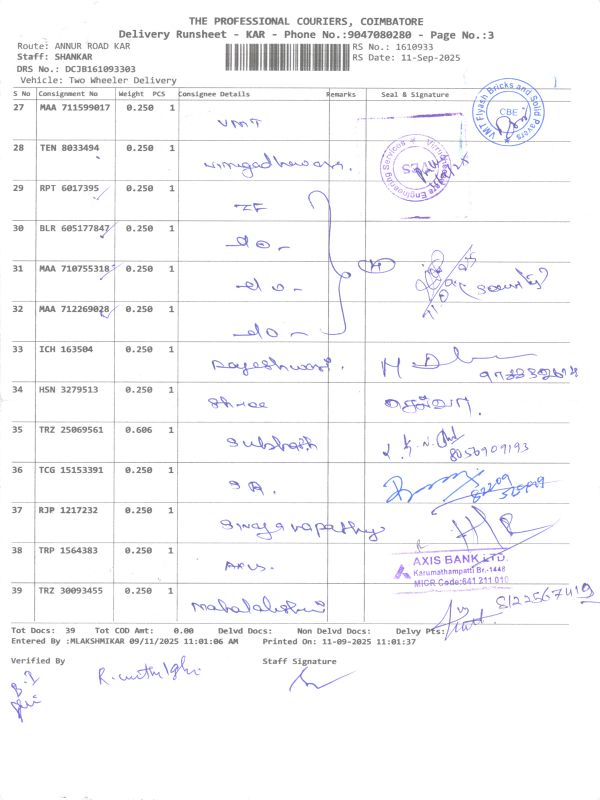 THE PROFESSIONAL COURIERS, COIMBATORE
Delivery Runsheet - KAR - Phone No.:9047080280 - Page No.:3
Route: ANNUR ROAD KAR
RS No.: 1610933
Staff: SHANKAR
RS Date: 11-Sep-2025
DRS No.: DCJB161093303
Vehicle: Two Wheeler Delivery
S No Consignment No Weight PCS Consignee Details Remarks Seal & Signature
27 MAA 711599017 0.250 1 VMT
VMT Flyash Bricks and Solid Pavers CBE
28 TEN 8033494 0.250 1
Engineering Services
29 RPT 6017395 0.250 1 ZF
30 BLR 605177847 0.250 1 do -
31 MAA 710755318 0.250 1 do - 4 Security
32 MAA 712269028 0.250 1 do -
33 ICH 163504 0.250 1 Rajeshwari.
34 HSN 3279513 0.250 1 Shree
35 TRZ 25069561 0.606 1 Subhash 8056909193
36 TCG 15153391 0.250 1
37 RJP 1217232 0.250 1
38 TRP 1564383 0.250 1
AXIS BANK LTD.
Karumathampatti Br.-1448
MICR Code:641 211 010
39 TRZ 30093455 0.250 1 Mahalakshmi 8122567419
Tot Docs: 39 Tot COD Amt: 0.00 Delvd Docs: Non Delvd Docs: Delvy Pts:
Entered By :MLAKSHMIKAR 09/11/2025 11:01:06 AM Printed On: 11-09-2025 11:01:37
Verified By Staff Signature